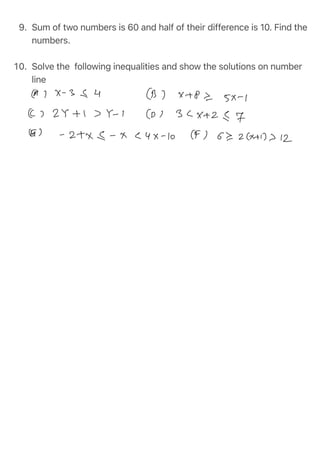 9. Sum of two numbers is 60 and half of their difference is 10. Find the
numbers.
10. Solve the following inequalities and show the solutions on number
line
(A) x-3 ≤ 4 (B) x+8 ≥ 5x-1
(C) 2Y+1 > Y-1 (D) 3 < x+2 ≤ 7
(E) -2+x ≤ -x < 4x-10 (F) 6 ≥ 2(x+1) > 12